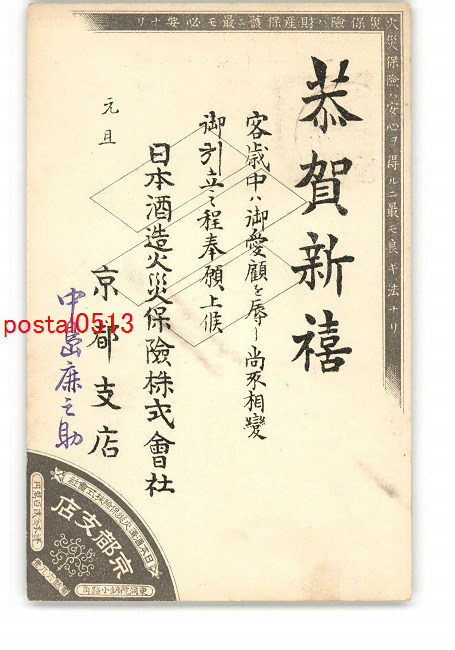 火災保險ハ安心ヲ得ルニ最モ良キ法ナリ
火災保險ハ財産保護ニ最モ必要ナリ
恭賀新禧
客歳中ハ御愛顧を辱し尚不相變
御引立之程奉願上候
元旦
日本酒造火災保險株式會社
京都支店
中島廉之助
posta0513
日本酒造火災保險株式會社
京都支店